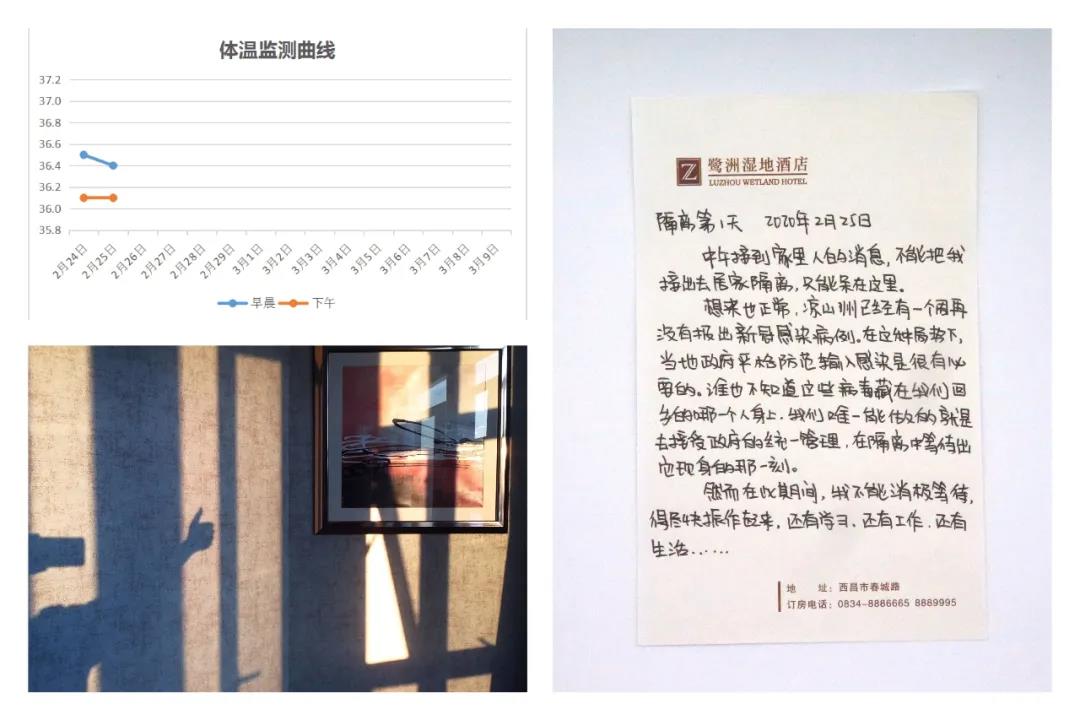 体温监测曲线
37.2
37.0
36.8
36.6
36.4
36.2
36.0
35.8
2月24日
2月25日
2月26日
2月27日
2月28日
2月29日
3月1日
3月2日
3月3日
3月4日
3月5日
3月6日
3月7日
3月8日
3月9日
早晨
下午
Z
鹭洲湿地酒店
LUZHOU WETLAND HOTEL
隔离第1天 2020年2月25日
中午接到家里人的消息,不能把我
接出去居家隔离,只能呆在这里。
想来也正常,凉山州已经有一个周再
没有报出新冠感染病例。在这种局势下,
当地政府严格防范输入感染是很有必
要的。谁也不知道这些病毒藏在我们回
乡的哪一个人身上,我们唯一能做的就是
去接受政府的统一管理,在隔离中等待出
它现身的那一刻。
然而在此期间,我不能消极等待,
得尽快振作起来,还有学习、还有工作、还有
生活……
地 址:西昌市春城路
订房电话:0834-8886665 8889995